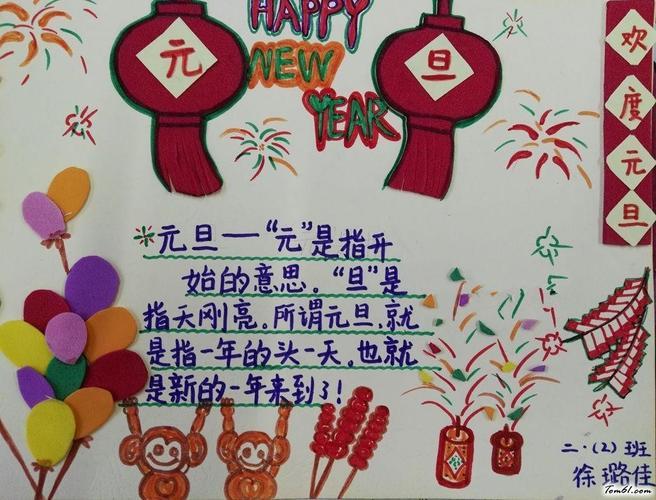 HAPPY
NEW
YEAR
元
旦
欢
度
元
旦
元旦——“元”是指开
始的意思。“旦”是
指天刚亮。所谓元旦,就
是指一年的头一天,也就
是新的一年来到了!
二·(2)班
徐璐佳
Tom61.com